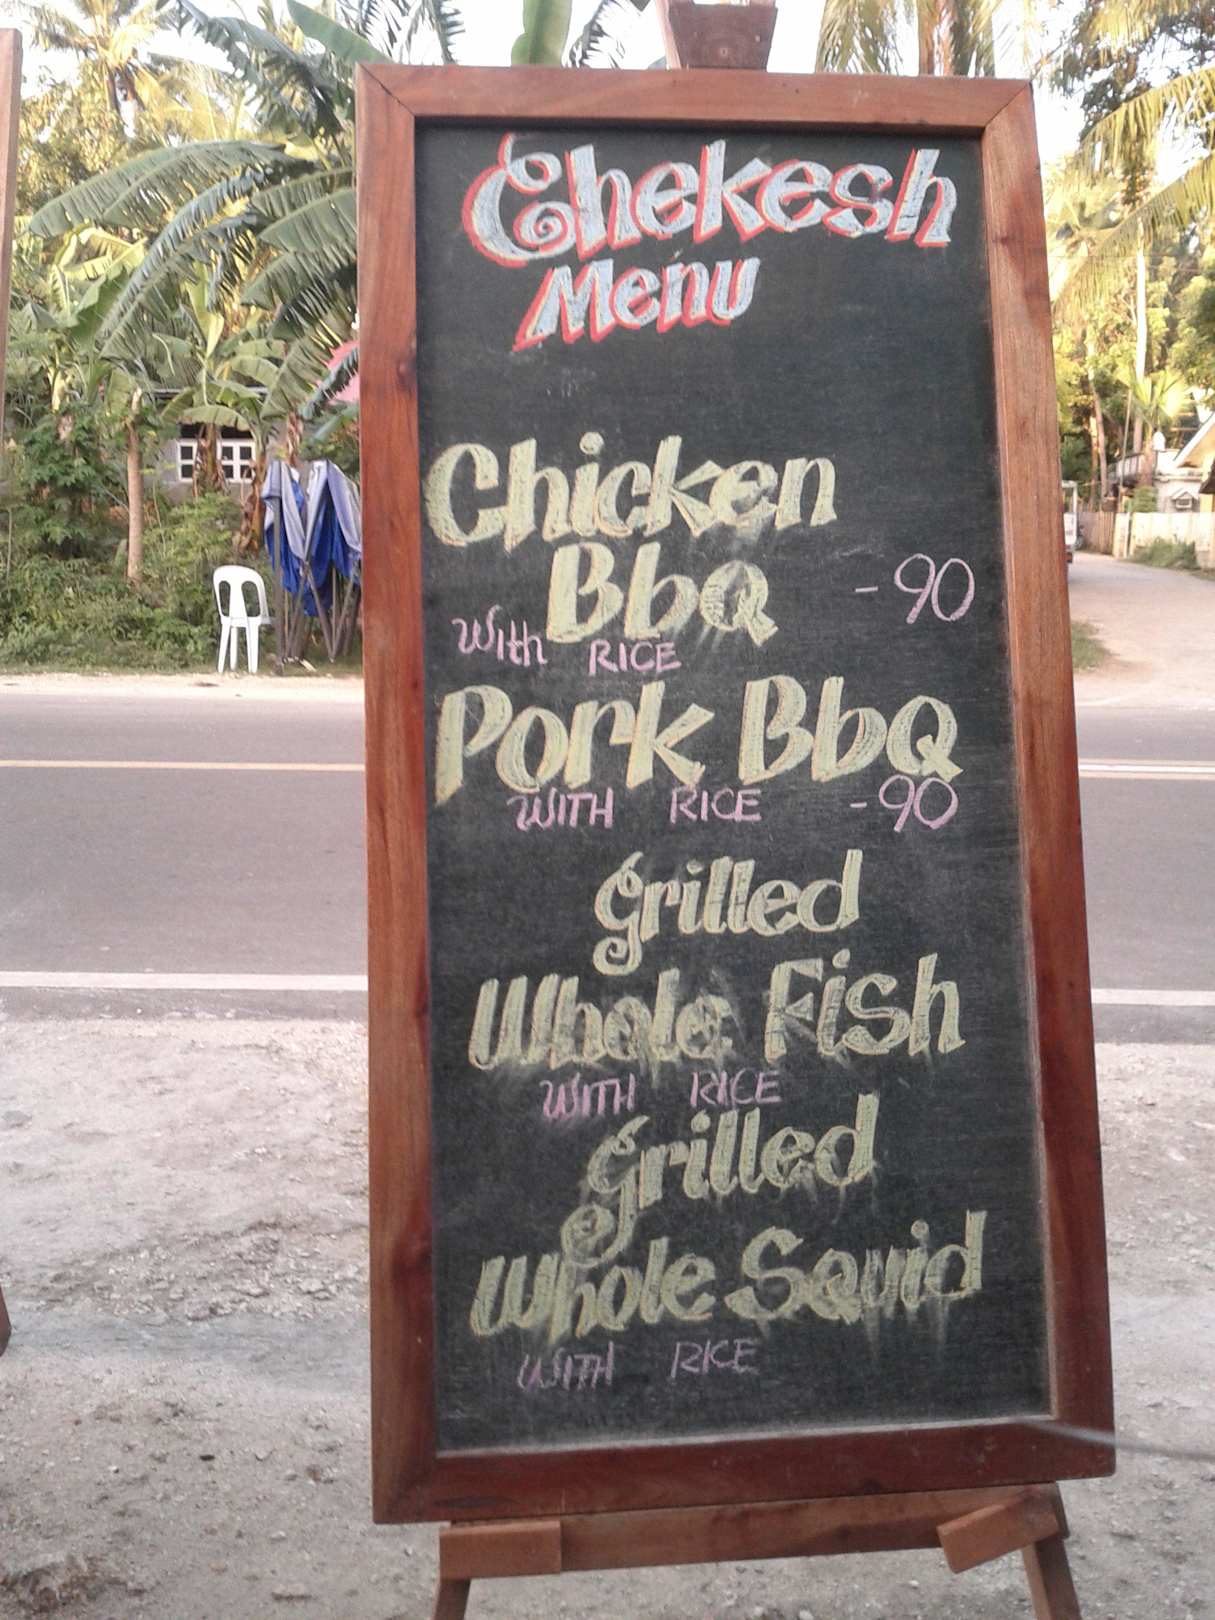 Chekesh
Menu
Chicken
BbQ - 90
With RICE
Pork BbQ
WITH RICE - 90
Grilled
Whole Fish
WITH RICE
Grilled
Whole Squid
WITH RICE